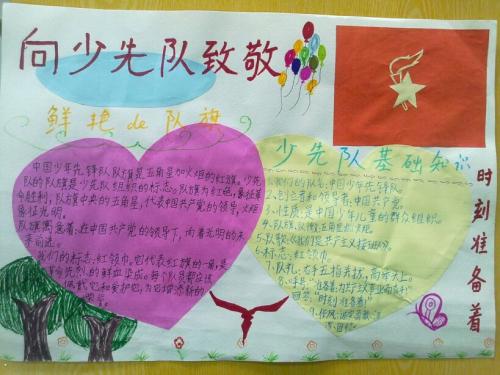 向少先队致敬
鲜艳de队旗
中国少年先锋队队旗是五角星加火炬的红旗。少先
队的队旗是少先队组织的标志。队旗为红色,象征革
命胜利,队旗中央的五角星,代表中国共产党的领导,火炬
象征光明。
队旗寓意着:在中国共产党的领导下,向着光明的未
来前进。
我们的标志:红领巾。它代表红旗的一角,是
革命先烈的鲜血染成。每个队员都应该
佩戴它和爱护它,为它增添新的
荣誉。
少先队基础知识
1、我们的队名:中国少年先锋队。
2、创立者和领导者:中国共产党。
3、性质:是中国少年儿童的群众组织。
4、队旗
5、队歌:《我们是共产主义接班人》。
6、标志:红领巾。
7、队礼:右手五指并拢,高举头上。
8、呼号:"准备着:为共产主义事业而奋斗!"
回答:"时刻准备着!"
9、作风:诚实、勇敢、活
泼、团结。
时刻准备着